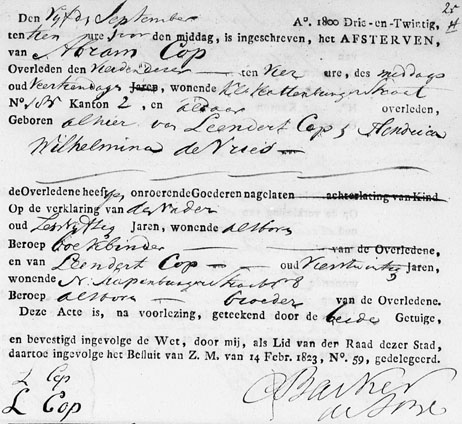 25
Den Vyfde September A°. 1800 Drie-en-Twintig,
ten tien ure voor den middag, is ingeschreven, het AFSTERVEN,
van Abram Cop
Overleden den deser ten vier ure, des middags
oud Veertien dagen Jaren, wonende Kattenburger Straat
N°. Kanton 2, en aldaar overleden,
Geboren alhier van Leendert Cop & Hendrica
Wilhelmina de Vries
de Overledene heeft onroerende Goederen nagelaten achterlating van Kind
Op de verklaring van de Vader
oud Jaren, wonende alsboven
Beroep boekbinder van de Overledene,
en van Leendert Cop oud Jaren,
wonende N. Rapenburger Straat N° 8
Beroep alsboven broeder van de Overledene.
Deze Acte is, na voorlezing, geteekend door de beide Getuige,
en bevestigd ingevolge de Wet, door mij, als Lid van den Raad dezer Stad,
daartoe ingevolge het Besluit van Z. M. van 14 Febr. 1823, N°. 59, gedelegeerd.
L Cop
L Cop